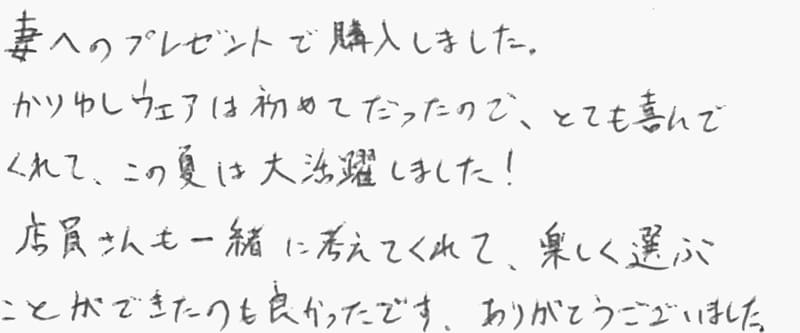 妻へのプレゼントで購入しました。
かりゆしウェアは初めてだったので、とても喜んで
くれて、この夏は大活躍しました!
店員さんも一緒に考えてくれて、楽しく選ぶ
ことができたのも良かったです。ありがとうございました。